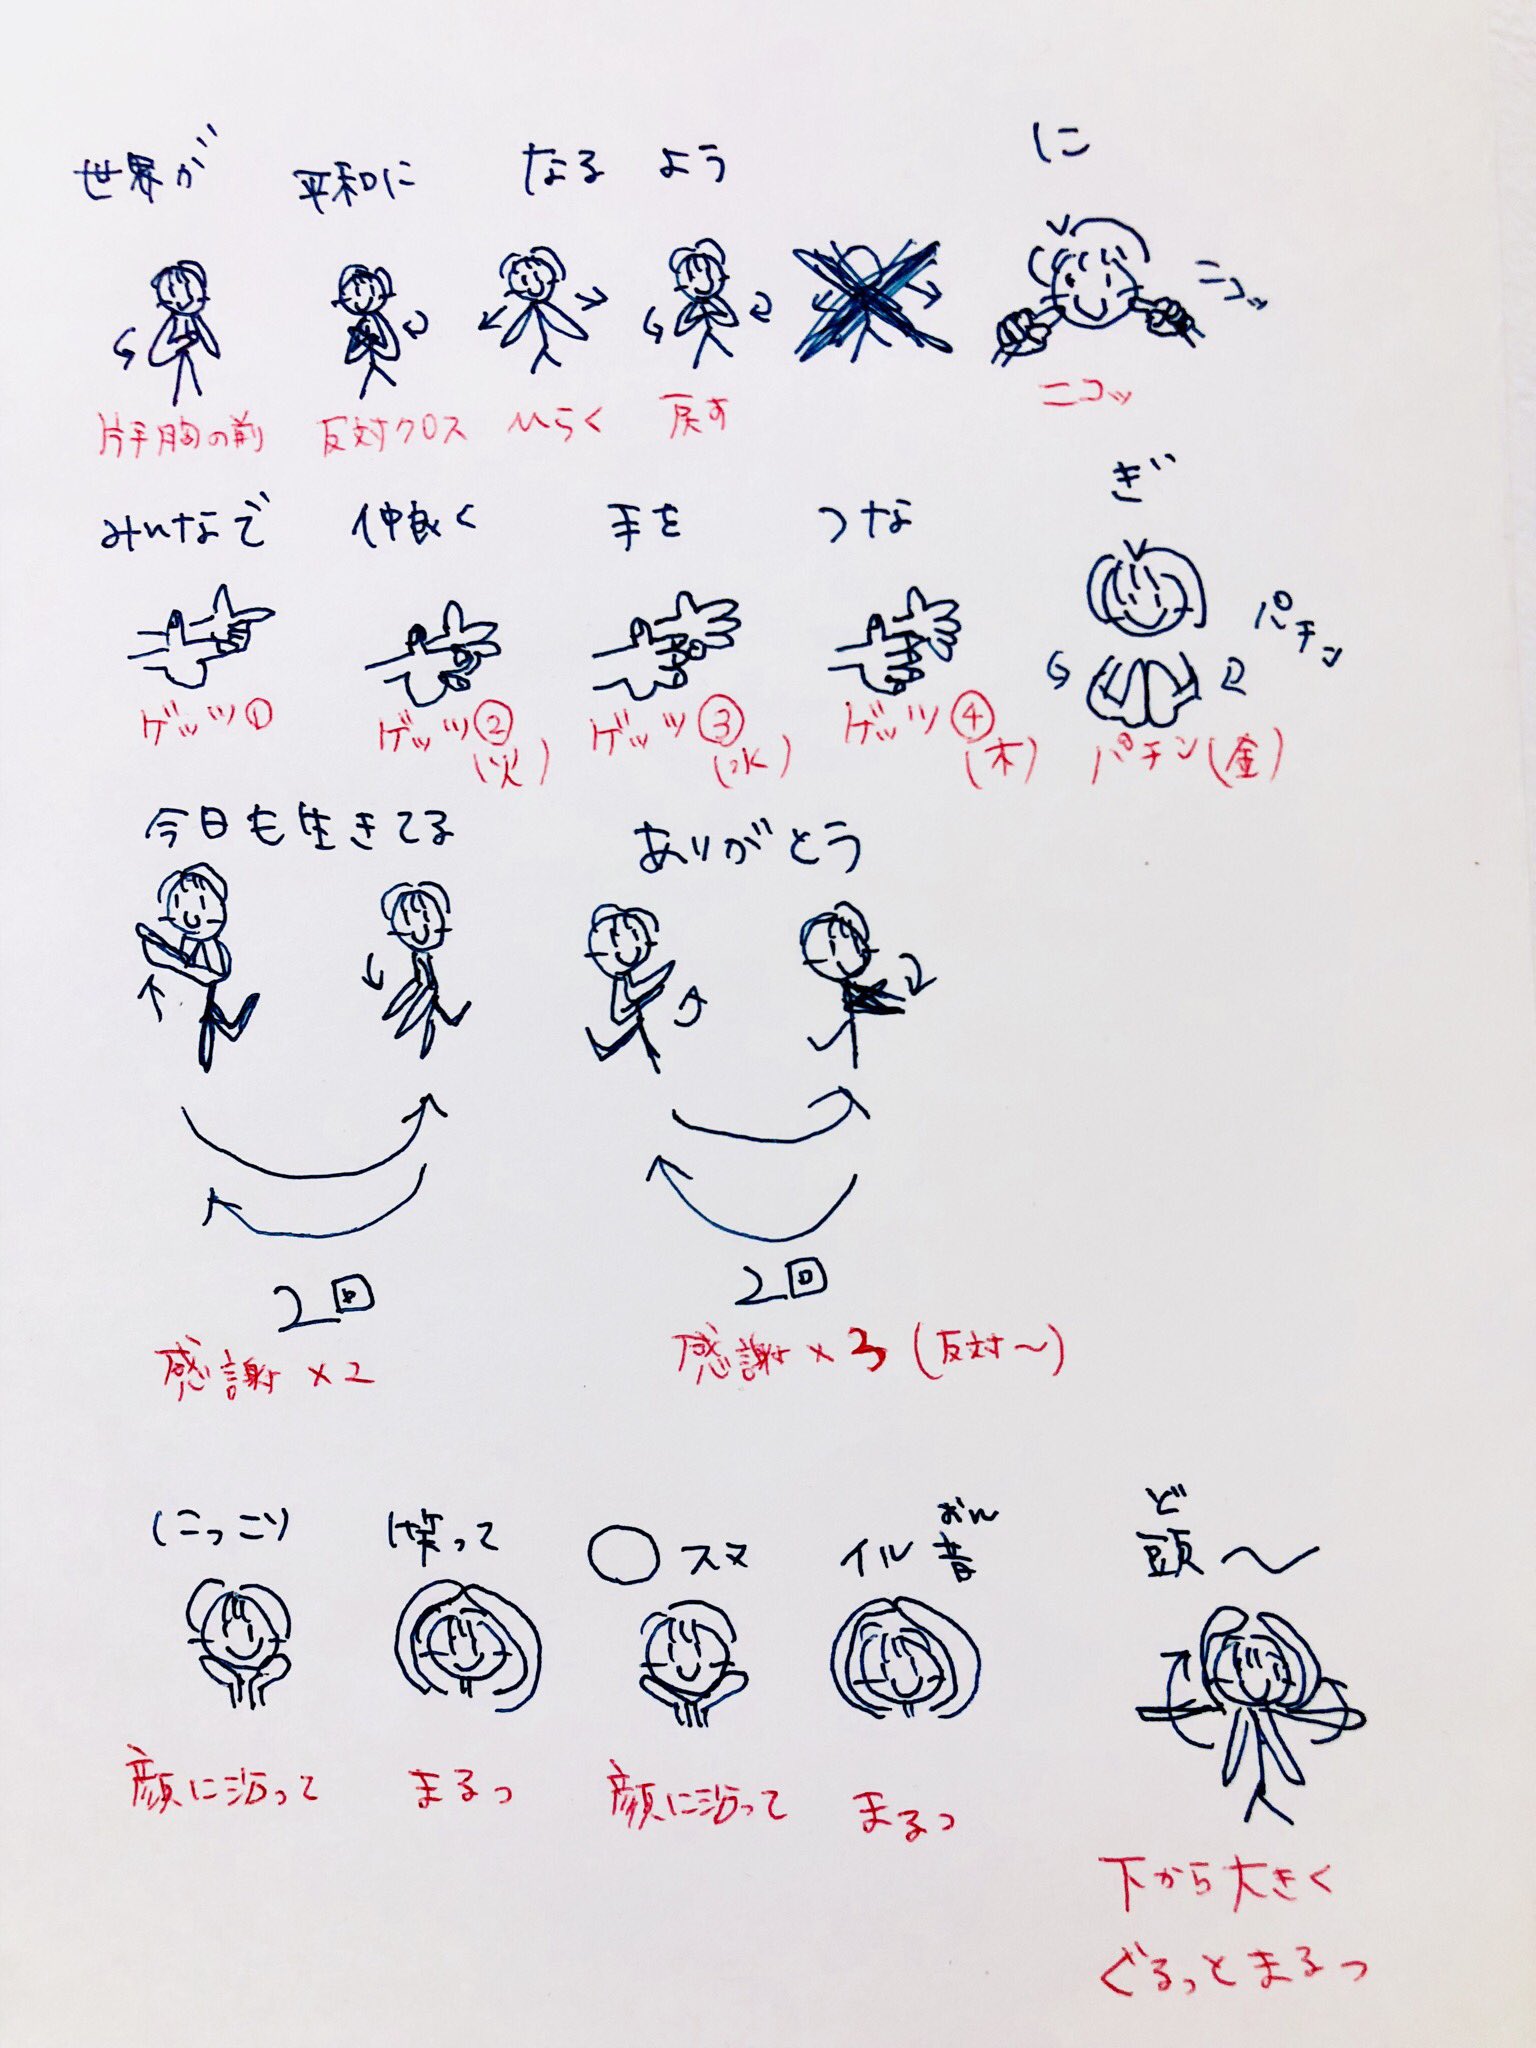 世界が 平和に なる よう に
ニコッ
片手胸の前 反対クロス ひらく 戻す ニコッ
みんなで 仲良く 手を つな ぎ
パチン
ゲッツ① ゲッツ②(火) ゲッツ③(水) ゲッツ④(木) パチン(金)
今日も生きてる ありがとう
2回 2回
感謝×2 感謝×3(反対〜)
おん ど
にっこり 笑って ○スヌ イル音 頭〜
顔に沿って まるっ 顔に沿って まるっ
下から大きく
ぐるっとまるっ